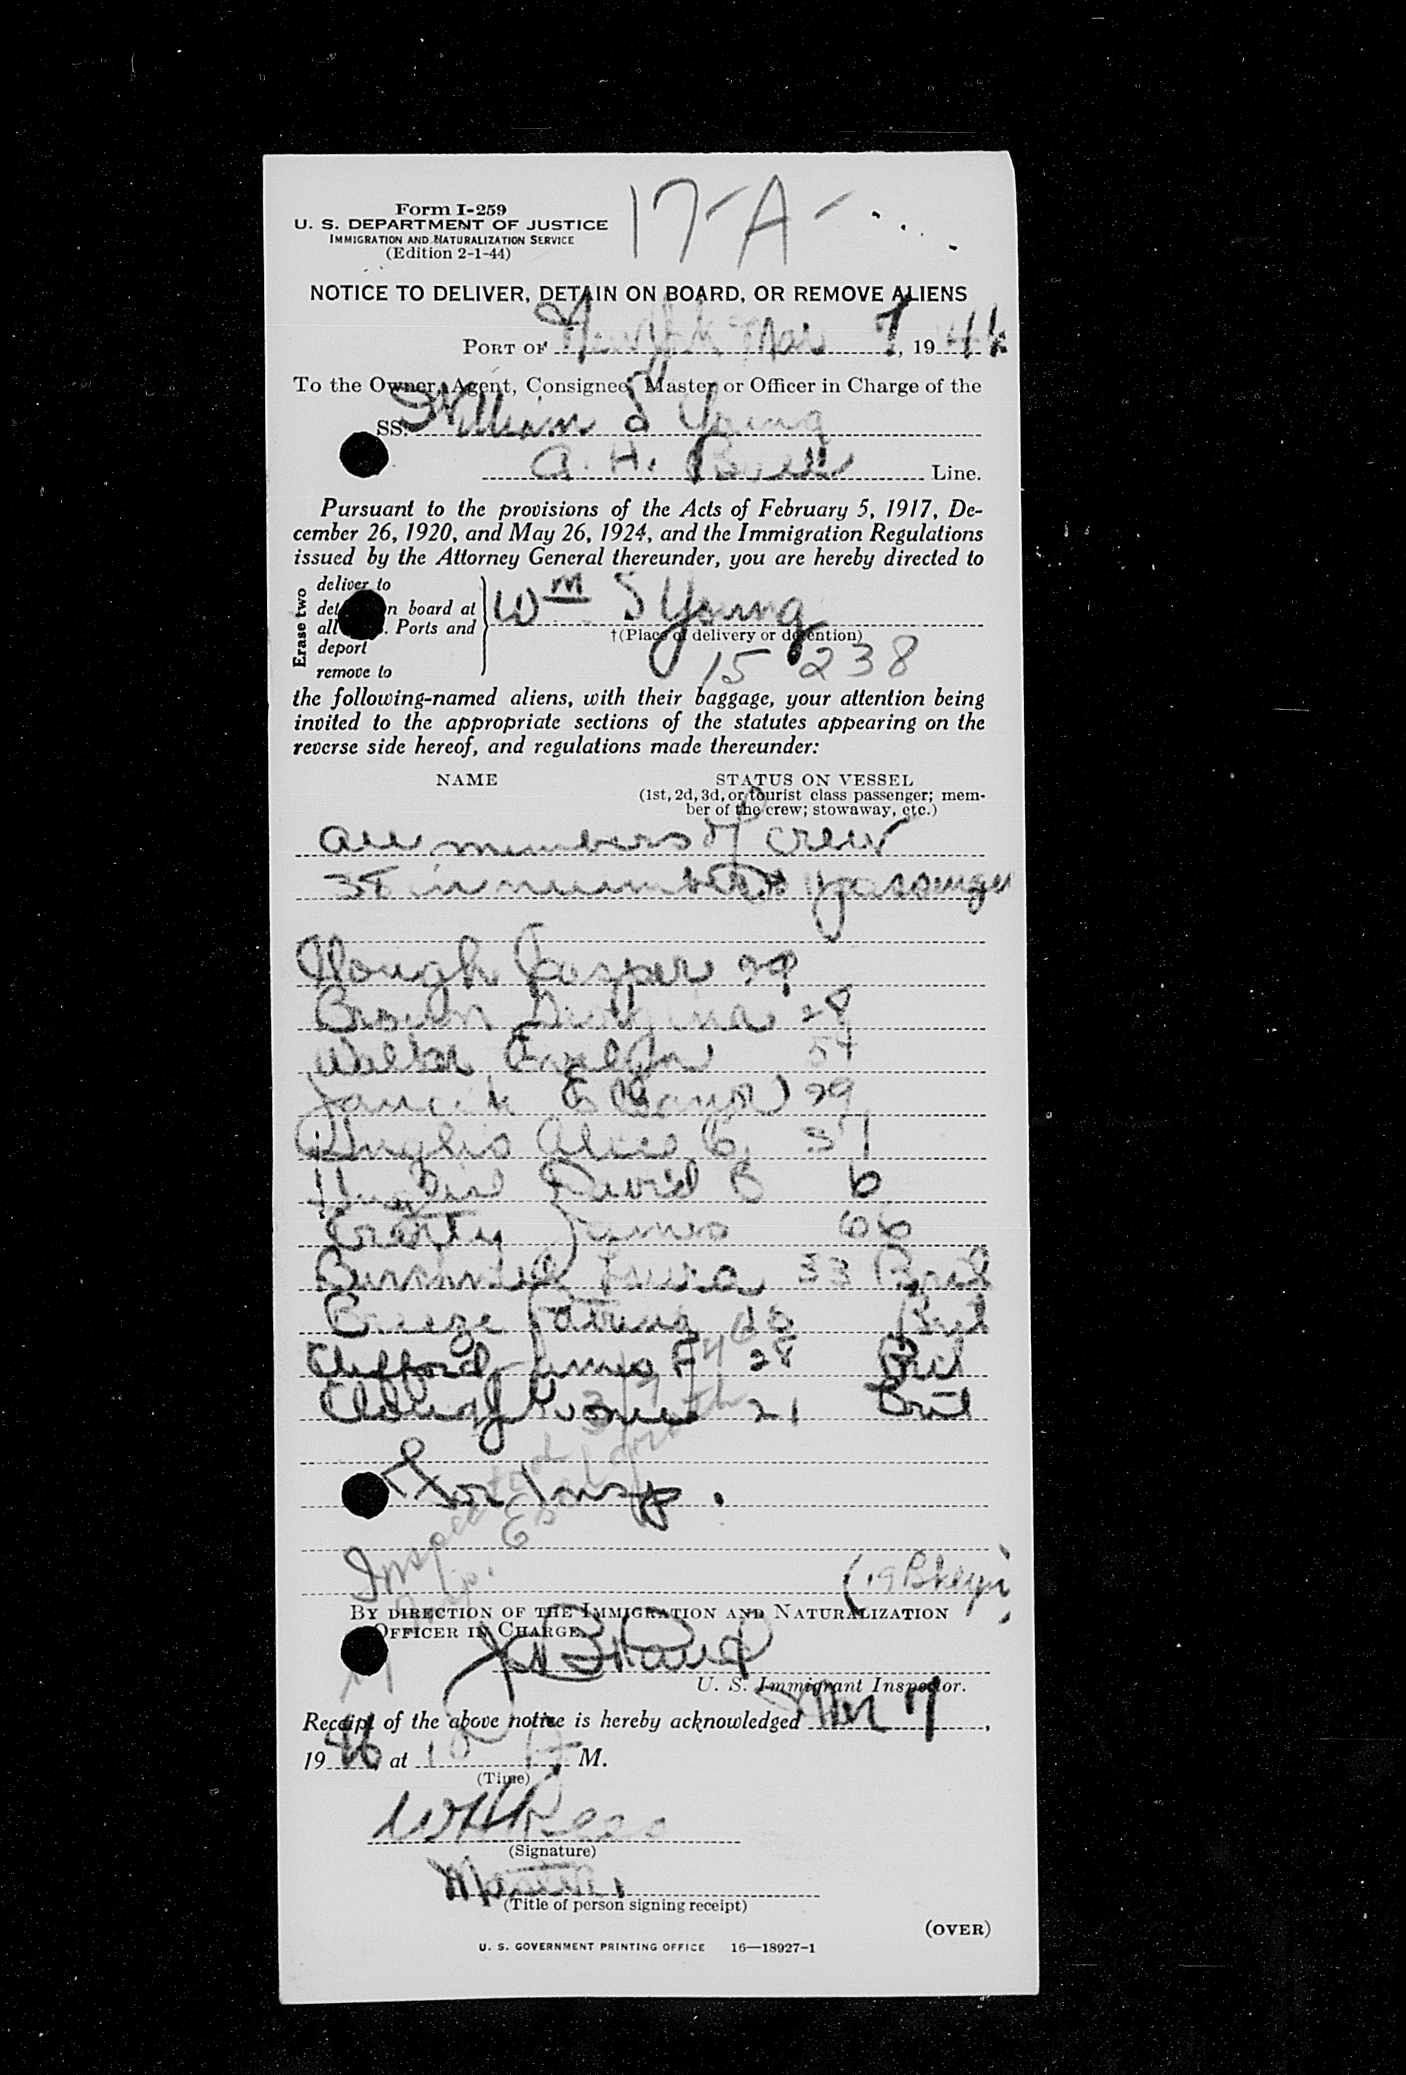 17-A-
Form I-259
U. S. DEPARTMENT OF JUSTICE
IMMIGRATION AND NATURALIZATION SERVICE
(Edition 2-1-44)
NOTICE TO DELIVER, DETAIN ON BOARD, OR REMOVE ALIENS
PORT OF New York Mar 7, 19 46
To the Owner, Agent, Consignee, Master or Officer in Charge of the
SS. William S Young
A. H. Bull Line.
Pursuant to the provisions of the Acts of February 5, 1917, De-
cember 26, 1920, and May 26, 1924, and the Immigration Regulations
issued by the Attorney General thereunder, you are hereby directed to
Erase two
deliver to
on board at
all Ports and
deport
remove to
Wm S Young
†(Place of delivery or detention)
15 238
the following-named aliens, with their baggage, your attention being
invited to the appropriate sections of the statutes appearing on the
reverse side hereof, and regulations made thereunder:
NAME STATUS ON VESSEL
(1st, 2d, 3d, or tourist class passenger; mem-
ber of the crew; stowaway, etc.)
all members of crew
38 in number passenger
Jasper
Brown Georgina 28
Walter 54
29
Alice 37
David B 6
James 66
33 Brit
Breeze Brit
Clifford James F 28 Brit
Clough 21 Brit
For Insp.
Inspected 3/7/46
BY DIRECTION OF THE IMMIGRATION AND NATURALIZATION
OFFICER IN CHARGE
U. S. Immigrant Inspector.
Receipt of the above notice is hereby acknowledged Mar 7,
19 46 at M.
(Time)
(Signature)
Master
(Title of person signing receipt)
(OVER)
U. S. GOVERNMENT PRINTING OFFICE 16—18927-1